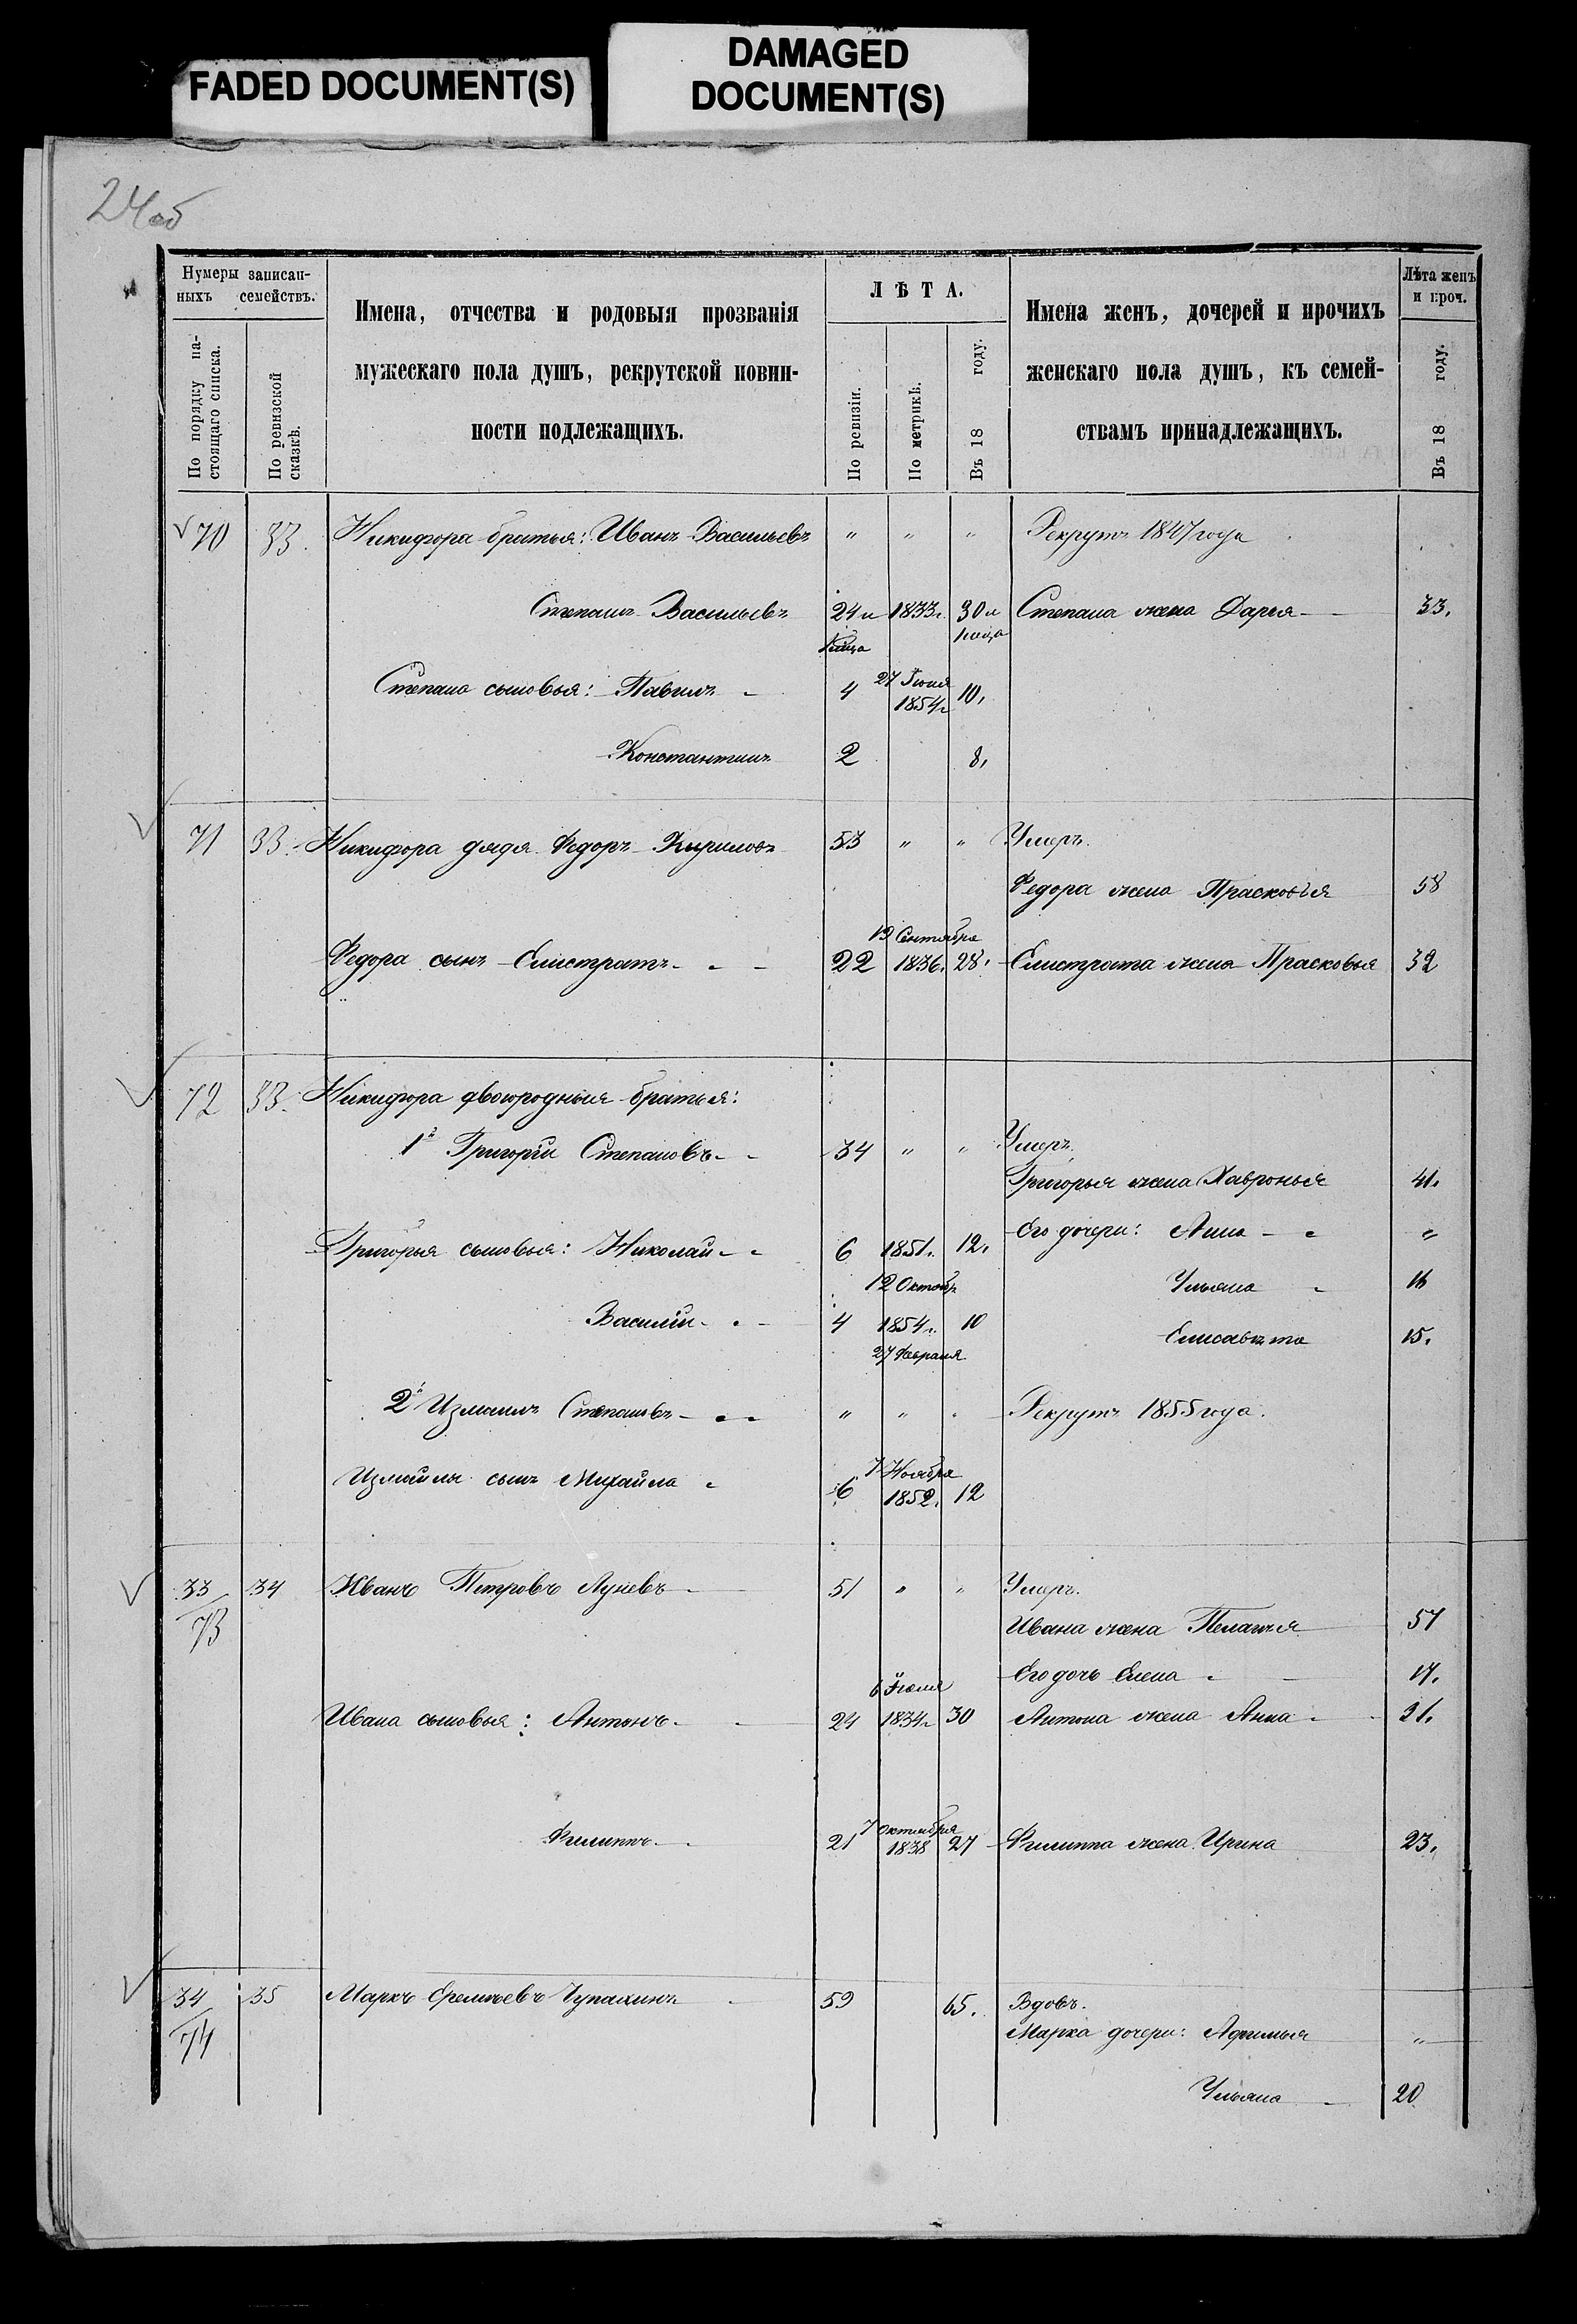 FADED DOCUMENT(S)
DAMAGED
DOCUMENT(S)
24об
Нумеры записан-
ныхъ семействъ.
По порядку на-
стоящаго списка.
По ревизской
сказкѣ.
Имена, отчества и родовыя прозванія
мужескаго пола душъ, рекрутской повин-
ности подлежащихъ.
ЛѢТА.
По ревизіи.
По метрикѣ.
Въ 18 году.
Имена женъ, дочерей и прочихъ
женскаго пола душъ, къ семей-
ствамъ принадлежащихъ.
Лѣта женъ
и проч.
Въ 18 году.
70 33. Никифора братья: Иванъ Васильевъ " " " Рекрутъ 1847 года
Степанъ Васильевъ 24 и 1833 г. 30 и Степана жена Дарья 33.
Степана сыновья: Павилъ 4 27 Іюня 1854 г. 10,
Константинъ 2 8,
71 33. Никифора дядя Федоръ Кириловъ 53 " " Умеръ.
Федора жена Прасковья 58
Федора сынъ Елистратъ 22 19 Сентября 1836. 28. Елистрата жена Прасковья 32
72 33. Никифора двоюродныя братья:
1й Григорій Степановъ 34 " " Умеръ.
Григорья жена Хавронья 41.
Григорья сыновья: Николай 6 1851. 12. Его дочери: Анна "
12 Октябр Ульяна 16
Василій 4 1854 г. 10 Елисавѣта 15.
27 Февраля
2й Измаилъ Степановъ " " " Рекрутъ 1855 года.
Измаила сынъ Михайла 6 7 Ноября 1852. 12
33/73 34 Иванъ Петровъ Луневъ 51 " " Умеръ.
Ивана жена Пелагѣя 57
Его дочь Елена 17.
Ивана сыновья: Антонъ 24 6 Іюля 1834 г. 30 Антона жена Анна 31.
Филиппъ 21 7 Октября 1838 27 Филиппа жена Ирина 23.
34/74 35 Маркъ Еремѣевъ Чупахинъ 59 65. Вдовъ.
Марка дочери: Афимья "
Ульяна 20